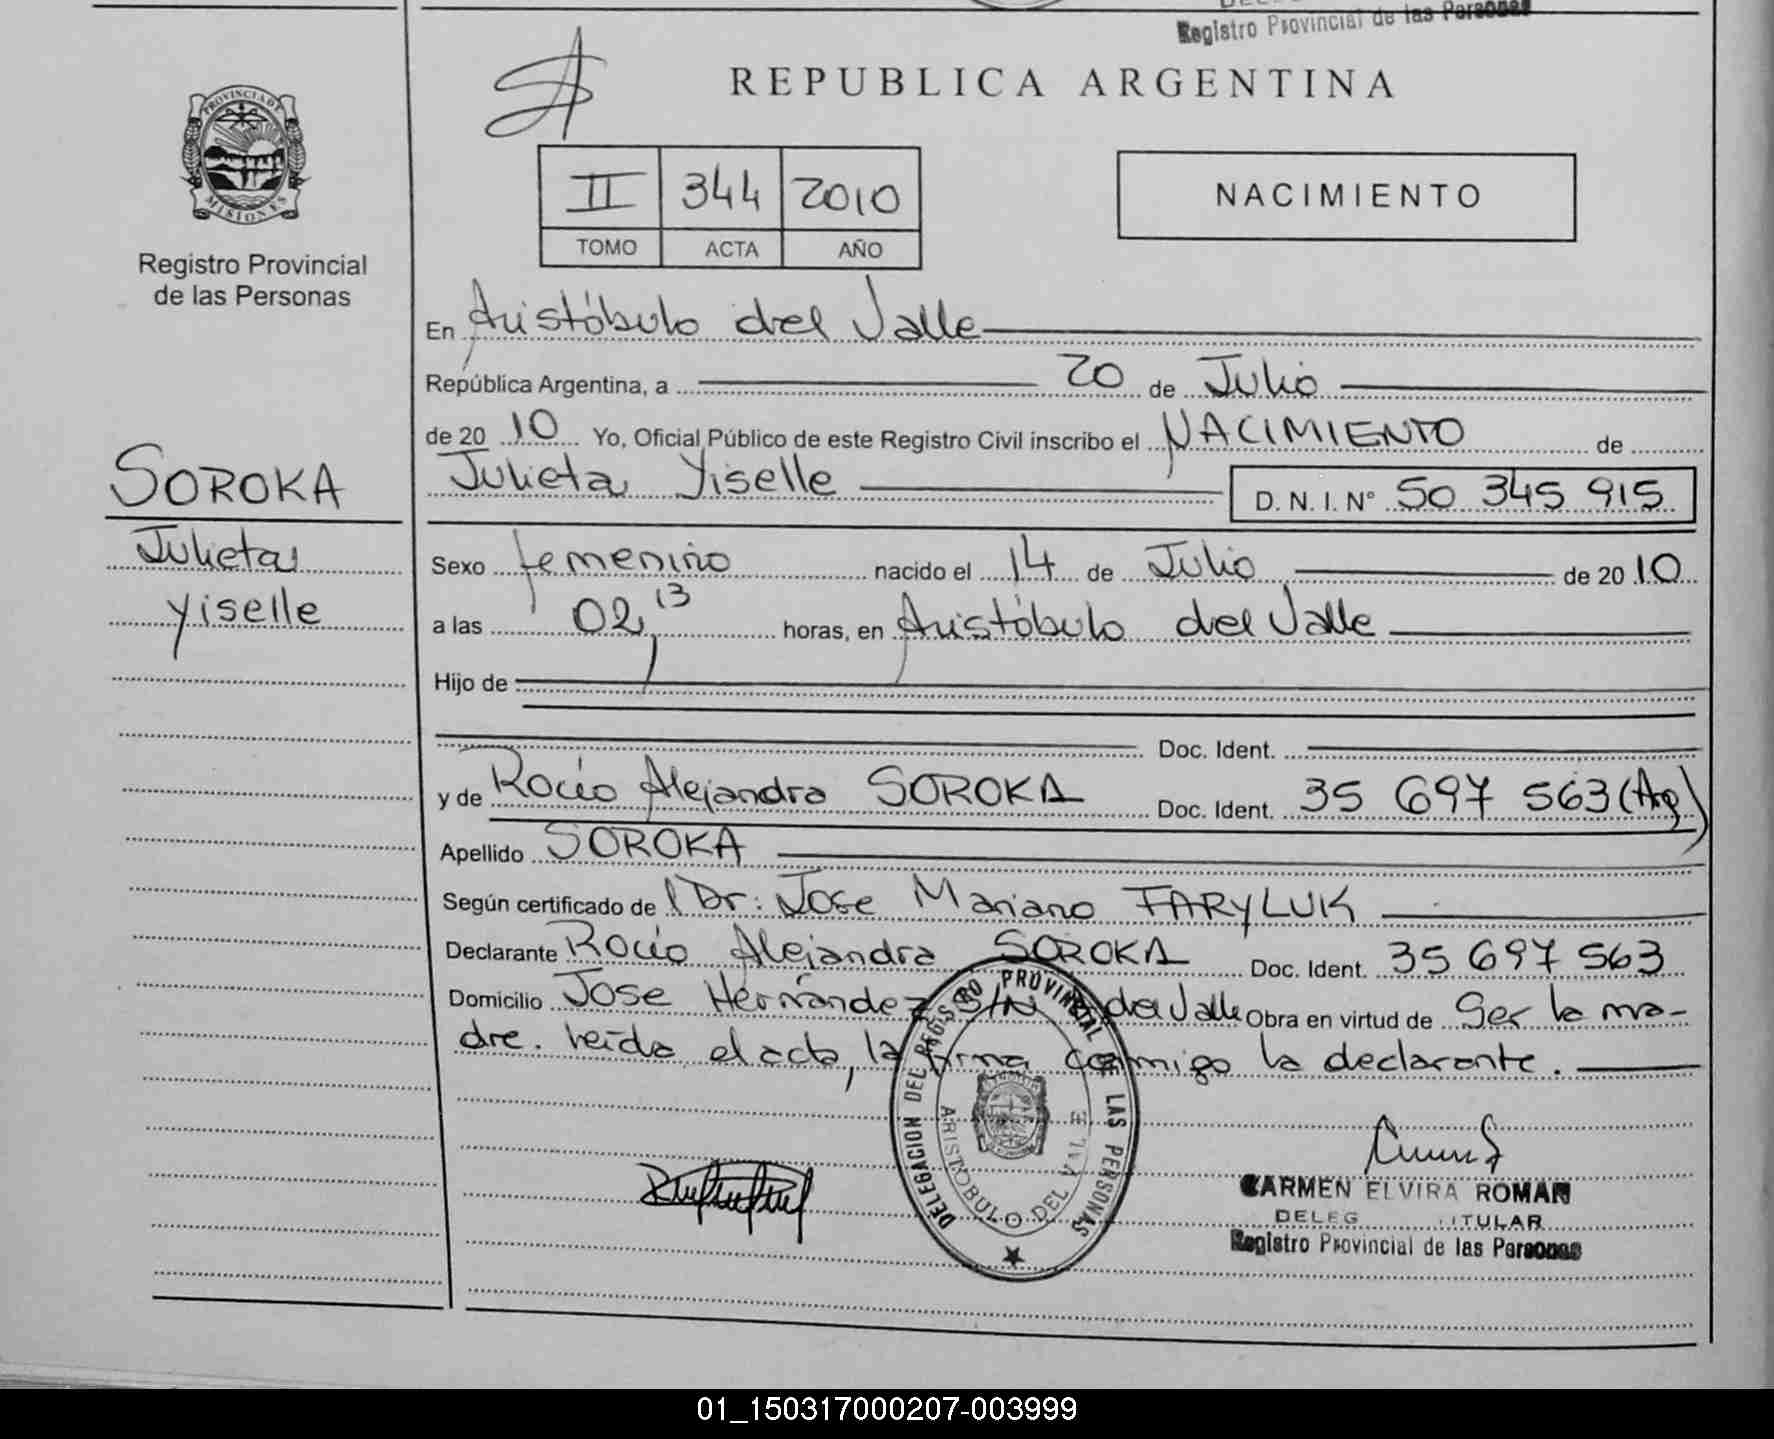 Registro Provincial de las Personas
REPUBLICA ARGENTINA
PROVINCIA DE MISIONES
II 344 2010
TOMO ACTA AÑO
NACIMIENTO
Registro Provincial
de las Personas
SOROKA
Julieta
Yiselle
En Aristóbulo del Valle
República Argentina, a 20 de Julio
de 2010 Yo, Oficial Público de este Registro Civil inscribo el NACIMIENTO de
Julieta Yiselle D. N. I. Nº 50 345 915
Sexo femenino nacido el 14 de Julio de 2010
a las 02,13 horas, en Aristóbulo del Valle
Hijo de
Doc. Ident.
y de Rocío Alejandra SOROKA Doc. Ident. 35 697 563 (Arg)
Apellido SOROKA
Según certificado del Dr: Jose Mariano FARYLUK
Declarante Rocío Alejandra SOROKA Doc. Ident. 35 697 563
Domicilio Jose Hernández S/N del Valle Obra en virtud de Ser la ma-
dre. leída el acta, la firma conmigo la declarante.
DELEGACION DEL REGISTRO PROVINCIAL DE LAS PERSONAS
ARISTOBULO DEL VALLE
CARMEN ELVIRA ROMAN
DELEG TITULAR
Registro Provincial de las Personas
01_150317000207-003999